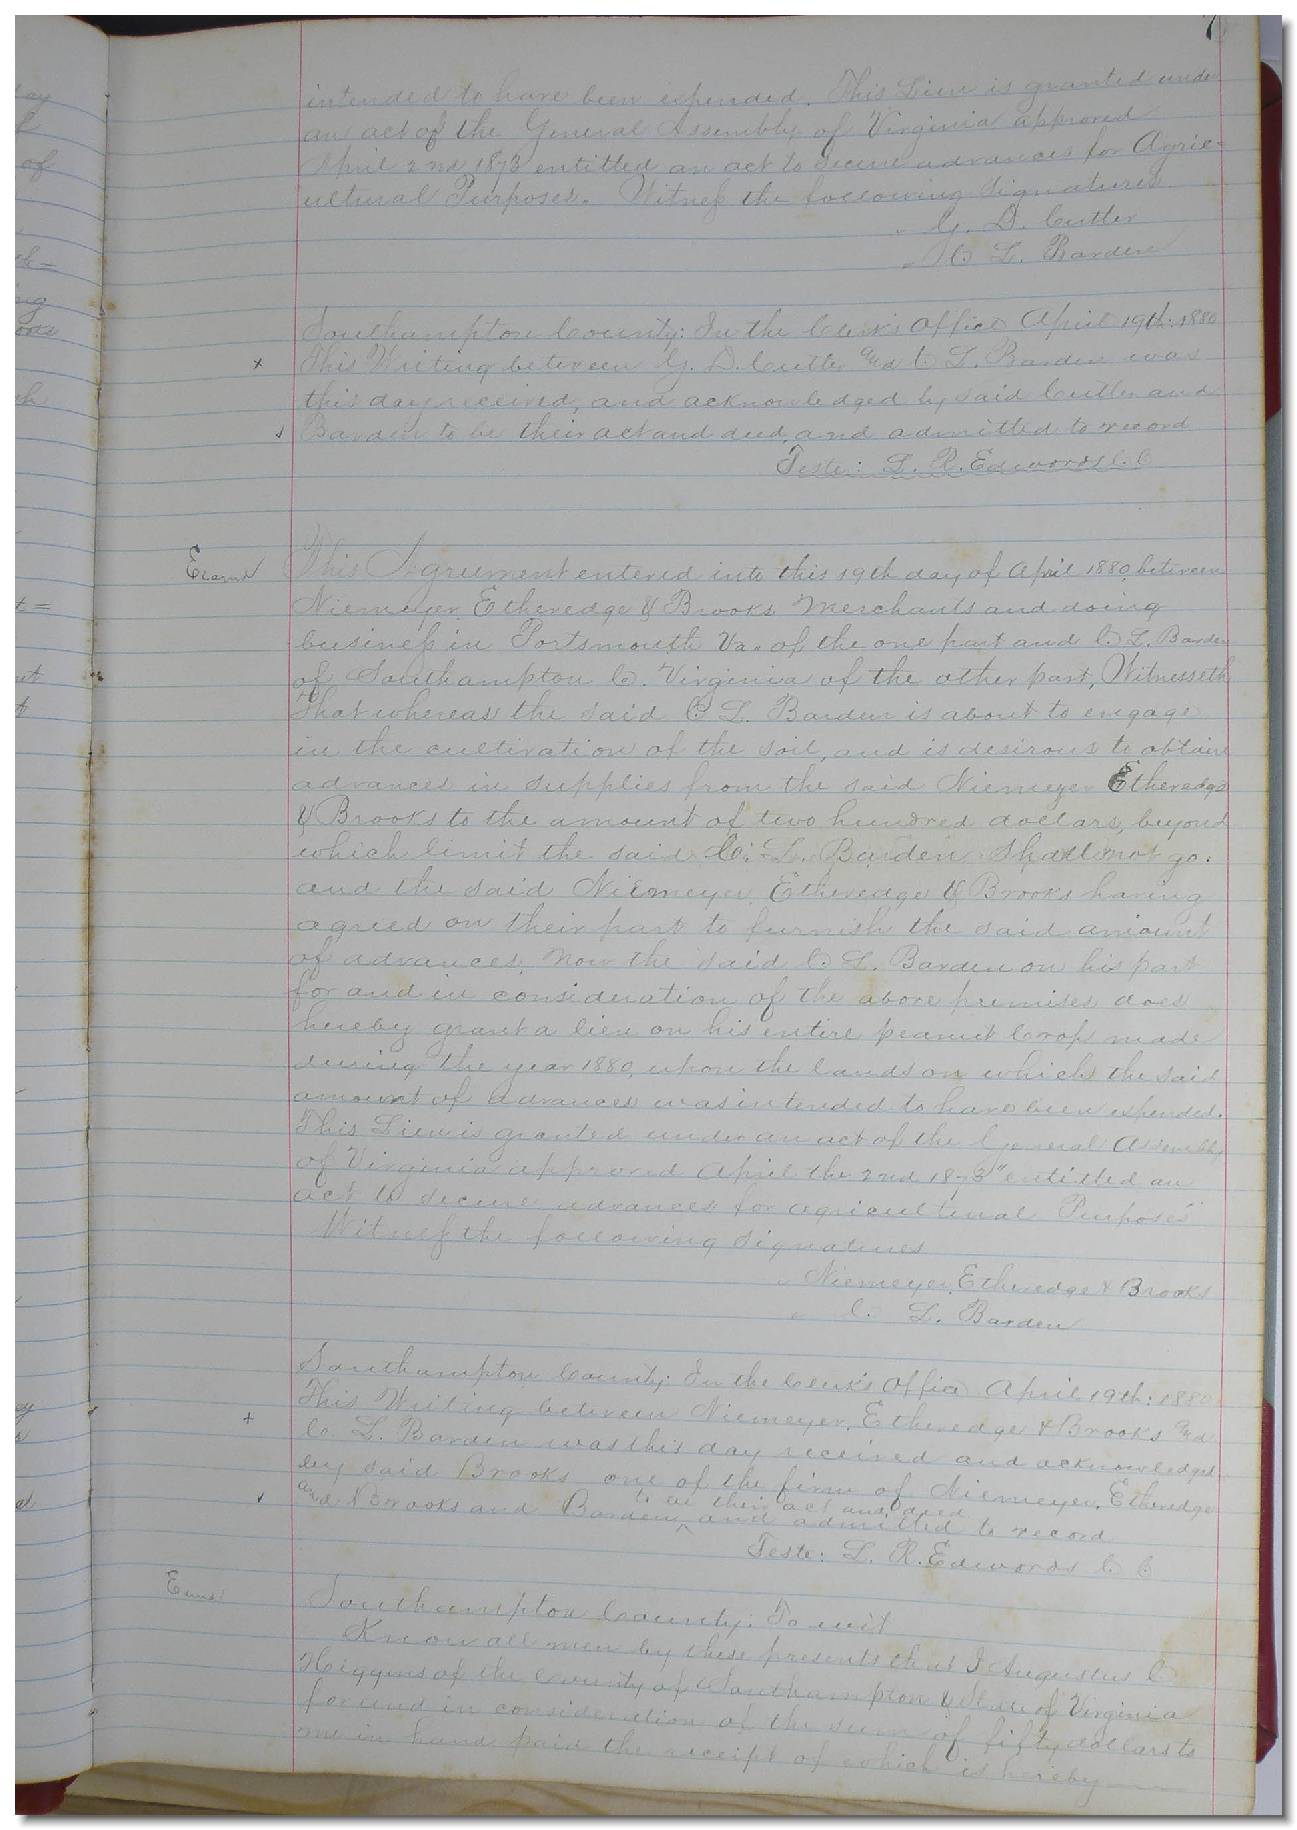 7
intended to have been expended. This Lien is granted under
an act of the General Assembly of Virginia approved
April 2nd 1873 entitled an act to secure advances for Agric-
ultural Purposes. Witness the following signatures
G. D. Cutler
C L. Barden
Southampton County: In the Clerk's Office April 19th: 1880
x This Writing between G. D. Cutler and C L. Barden was
this day received, and acknowledged by said Cutler and
Barden to be their act and deed, and admitted to record
Teste: L. R. Edwards C. C
Examd This Agreement entered into this 19th day of April 1880, between
Niemeyer, Etheredge & Brooks Merchants and doing
business in Portsmouth Va. of the one part and C L. Barden
of Southampton C. Virginia of the other part, Witnesseth
That whereas the said C L. Barden is about to engage
in the cultivation of the soil, and is desirous to obtain
advances in supplies from the said Niemeyer Etheredge
& Brooks to the amount of two hundred dollars, beyond
which limit the said C. L. Barden shall not go.
and the said Niemeyer, Etheredge & Brooks having
agreed on their part to furnish the said amount
of advances. Now the said C. L. Barden on his part
for and in consideration of the above premises does
hereby grant a lien on his entire peanut Crop made
during the year 1880, upon the lands on which the said
amount of advances was intended to have been expended.
This Lien is granted under an act of the General Assembly
of Virginia approved April the 2nd 1873 "entitled an
act to secure advances for agricultural Purposes"
Witness the following signatures
Niemeyer, Etheredge & Brooks
C. L. Barden
Southampton County: In the Clerk's Office April 19th: 1880
+ This Writing between Niemeyer, Etheredge & Brooks and
C L. Barden was this day received and acknowledged
by said Brooks one of the firm of Niemeyer, Etheredge
to be their act and deed
and Brooks and Barden ^ and admitted to record
Teste: L. R. Edwards C C
Southampton County: To wit
Know all men by these presents that I Augustus C
Higgins of the County of Southampton & State of Virginia
for and in consideration of the sum of fifty dollars to
me in hand paid the receipt of which is hereby